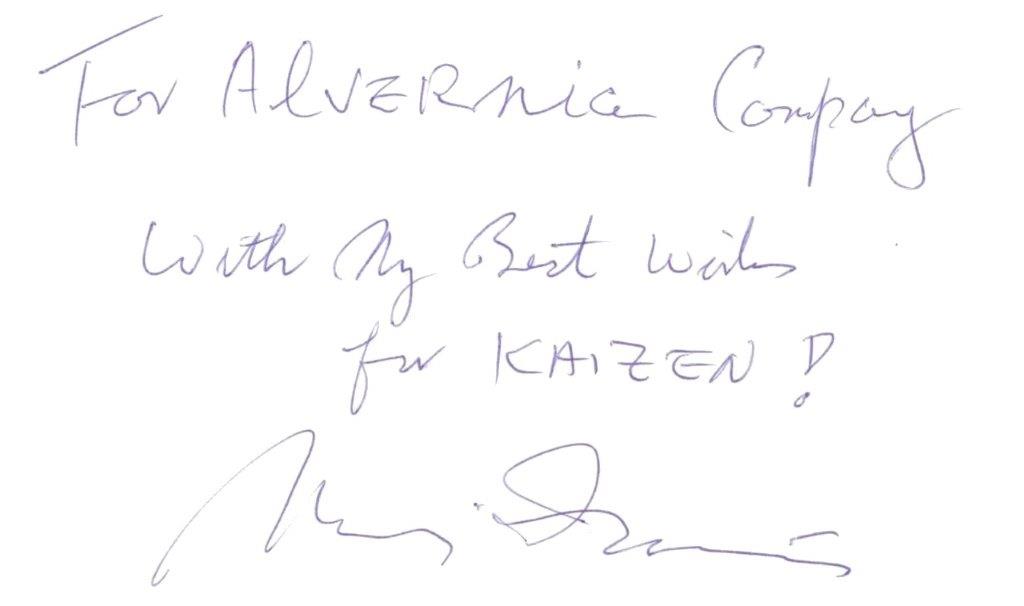 For Alvernia Compay
With My Best Wishes
for KAIZEN!